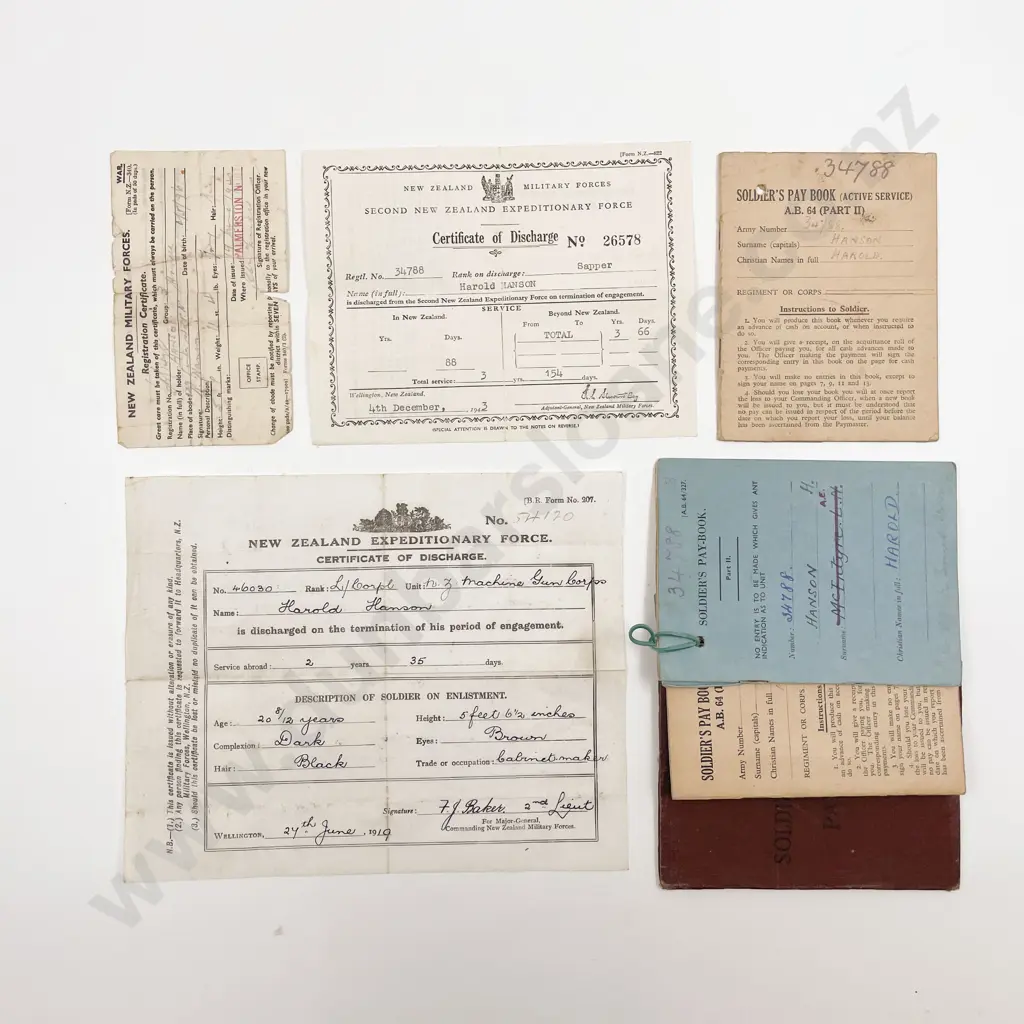 WAR.
[Form N.Z.—
NEW ZEALAND MILITARY FORCES.
Registration Certificate.
Great care must be taken of this certificate, which must always be carried on the person.
Registration No.
Group
Name (in full) of holder
Place of abode
Date of birth
Signature
Personal Description
Height: ft. in. Weight: lb. Eyes: Hair:
Distinguishing marks:
Date of issue
Where issued PALMERSTON N
Signature of Registration Officer.
OFFICE
STAMP.
Change of abode must be notified by reporting personally to the registration office in your new
district within SEVEN DAYS of your arrival.
[Form N.Z.—622
NEW ZEALAND MILITARY FORCES
SECOND NEW ZEALAND EXPEDITIONARY FORCE
Certificate of Discharge No 26578
Regtl. No. 34788 Rank on discharge: Sapper
Name (in full): Harold HANSON
is discharged from the Second New Zealand Expeditionary Force on termination of engagement.
SERVICE
In New Zealand. Beyond New Zealand.
Yrs. Days. From To Yrs. Days.
TOTAL 3 66
88
Total service: 3 yrs. 154 days.
Wellington, New Zealand.
4th December, 1943
Adjutant-General, New Zealand Military Forces.
(SPECIAL ATTENTION IS DRAWN TO THE NOTES ON REVERSE.)
34788
SOLDIER'S PAY BOOK (ACTIVE SERVICE)
A.B. 64 (PART II)
Army Number 34788
Surname (capitals) HANSON
Christian Names in full HAROLD.
REGIMENT OR CORPS
Instructions to Soldier.
1. You will produce this book whenever you require
an advance of cash on account, or when instructed to
do so.
2. You will give a receipt, on the acquittance roll of
the Officer paying you, for all cash advances made to
you. The Officer making the payment will sign the
corresponding entry in this book on the page for cash
payments.
3. You will make no entries in this book, except to
sign your name on pages 7, 9, 11 and 13.
4. Should you lose your book you will at once report
the loss to your Commanding Officer, when a new book
will be issued to you, but it must be understood that
no pay can be issued in respect of the period before the
date on which you report your loss, until your balance
has been ascertained from the Paymaster.
[B.R. Form No. 207.
No. 54120
NEW ZEALAND EXPEDITIONARY FORCE.
CERTIFICATE OF DISCHARGE.
No. 46030 Rank: L/Corpl Unit: N.Z. Machine Gun Corps
Name: Harold Hanson
is discharged on the termination of his period of engagement.
Service abroad: 2 years 35 days.
DESCRIPTION OF SOLDIER ON ENLISTMENT.
Age: 20 8/12 years Height: 5 feet 6½ inches
Complexion: Dark Eyes: Brown
Hair: Black Trade or occupation: Cabinetmaker
Signature: F J Baker 2nd Lieut
For Major-General,
Commanding New Zealand Military Forces.
WELLINGTON, 27th June, 1919
N.B.—(1.) This certificate is issued without alteration or erasure of any kind.
(2.) Any person finding this certificate is requested to forward it to Headquarters, N.Z.
Military Forces, Wellington, N.Z.
(3.) Should this certificate be lost or mislaid no duplicate of it can be obtained.
34788
SOLDIER'S PAY-BOOK.
Part II.
NO ENTRY IS TO BE MADE WHICH GIVES ANY
INDICATION AS TO UNIT
Number: 34788.
HANSON H.
Surname McIntyre L.H. A.E.
Christian Name in full: HAROLD.
SOLDIER'S PAY BOO
A.B. 64 (
Army Number
Surname (capitals)
Christian Names in full
REGIMENT OR CORPS
Instructions
SOLDI
PA